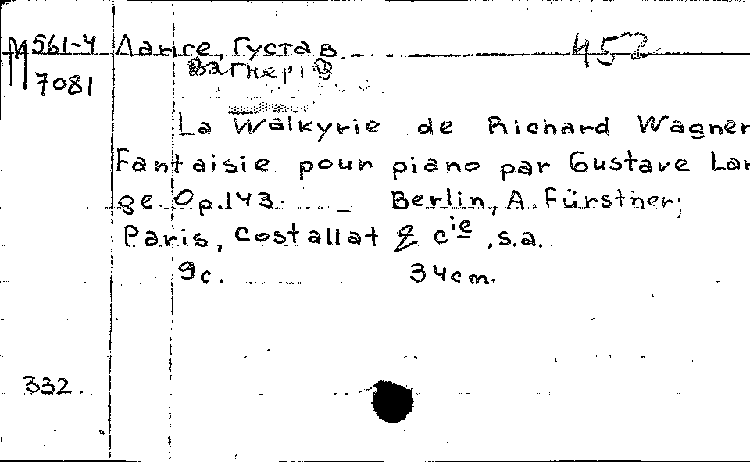 М 561-4 Ланге, Густав 452
7081
La Walkyrie de Richard Wagner
Fantaisie pour piano par Gustave Lan
ge. Op.143. _ Berlin, A. Fürstner;
Paris, Costallat & cie, s.a.
9c. 34cm.
332.